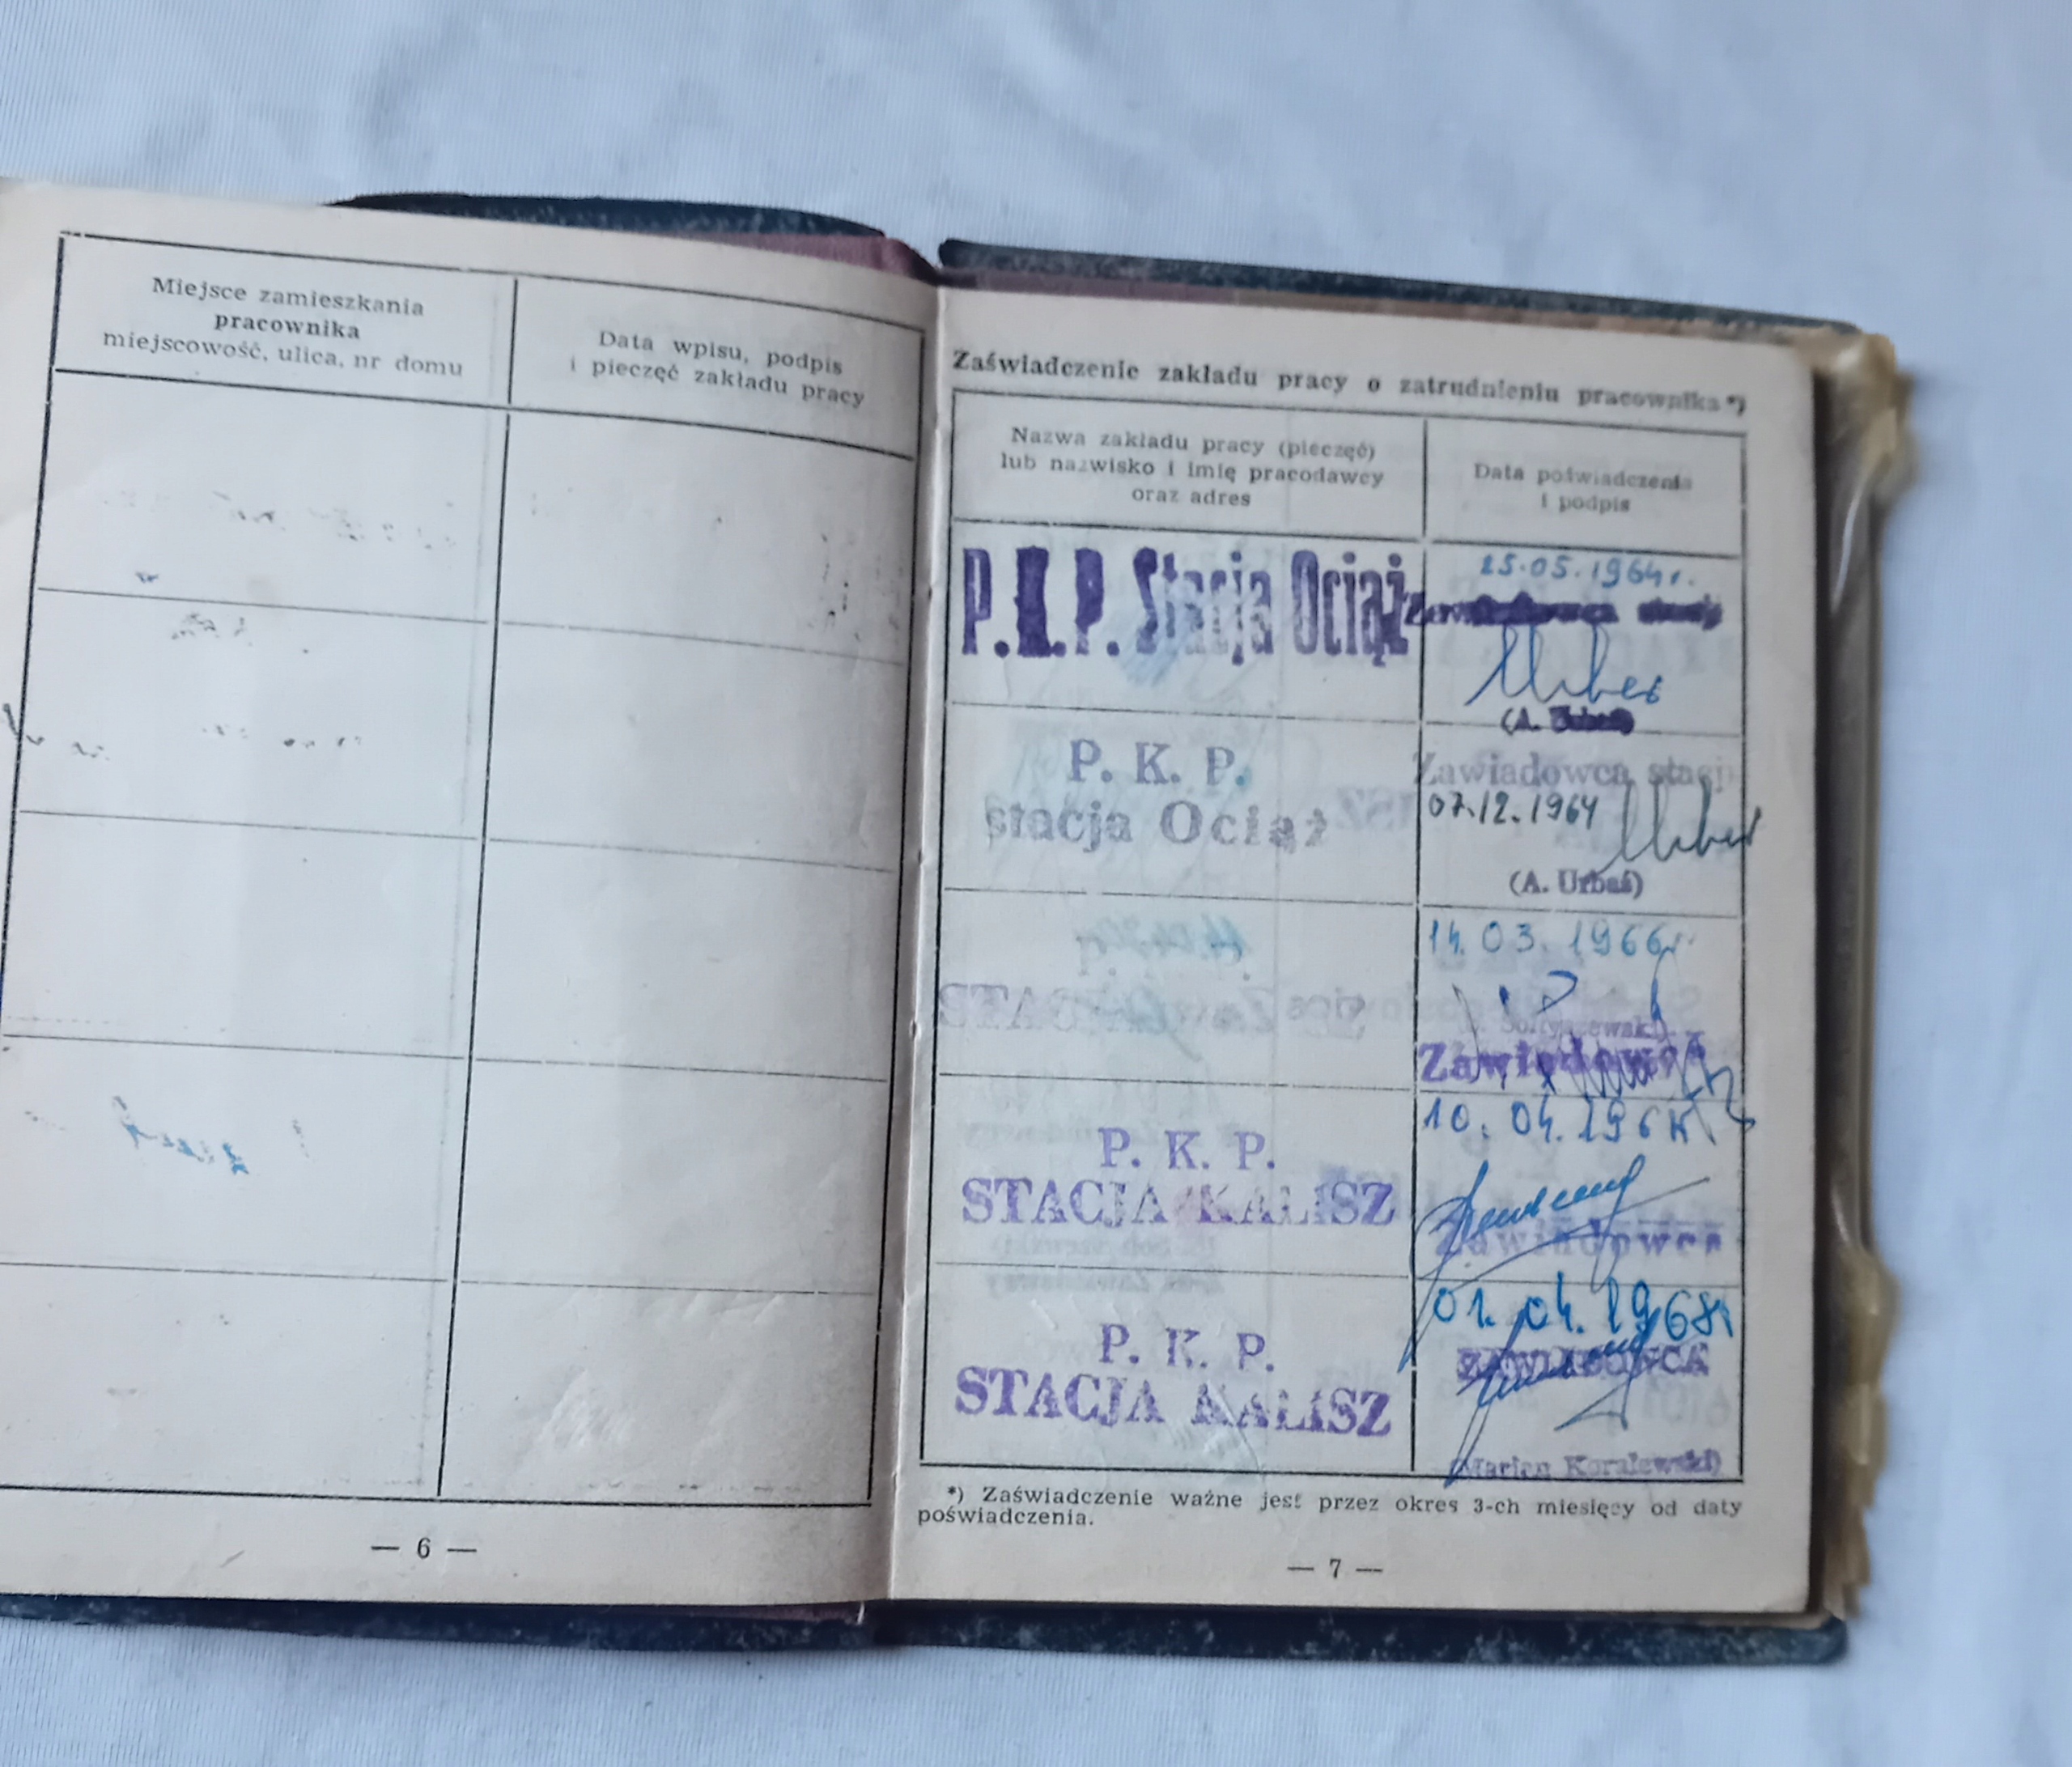 Miejsce zamieszkania
pracownika
miejscowość, ulica, nr domu
Data wpisu, podpis
i pieczęć zakładu pracy
— 6 —
Zaświadczenie zakładu pracy o zatrudnieniu pracownika *)
Nazwa zakładu pracy (pieczęć)
lub nazwisko i imię pracodawcy
oraz adres
Data poświadczenia
i podpis
P.K.P. Stacja Ociąż
25.05.1964r.
P. K. P.
stacja Ociąż
Zawiadowca stacji
07.12.1964
(A. Urbaś)
14.03.1966r.
Zawiadowca
P. K. P.
STACJA KALISZ
10.04.196
Zawiadowca
P. K. P.
STACJA KALISZ
01.04.1968r
ZAWIADOWCA
(Marian Koralewski)
*) Zaświadczenie ważne jest przez okres 3-ch miesięcy od daty
poświadczenia.
— 7 —